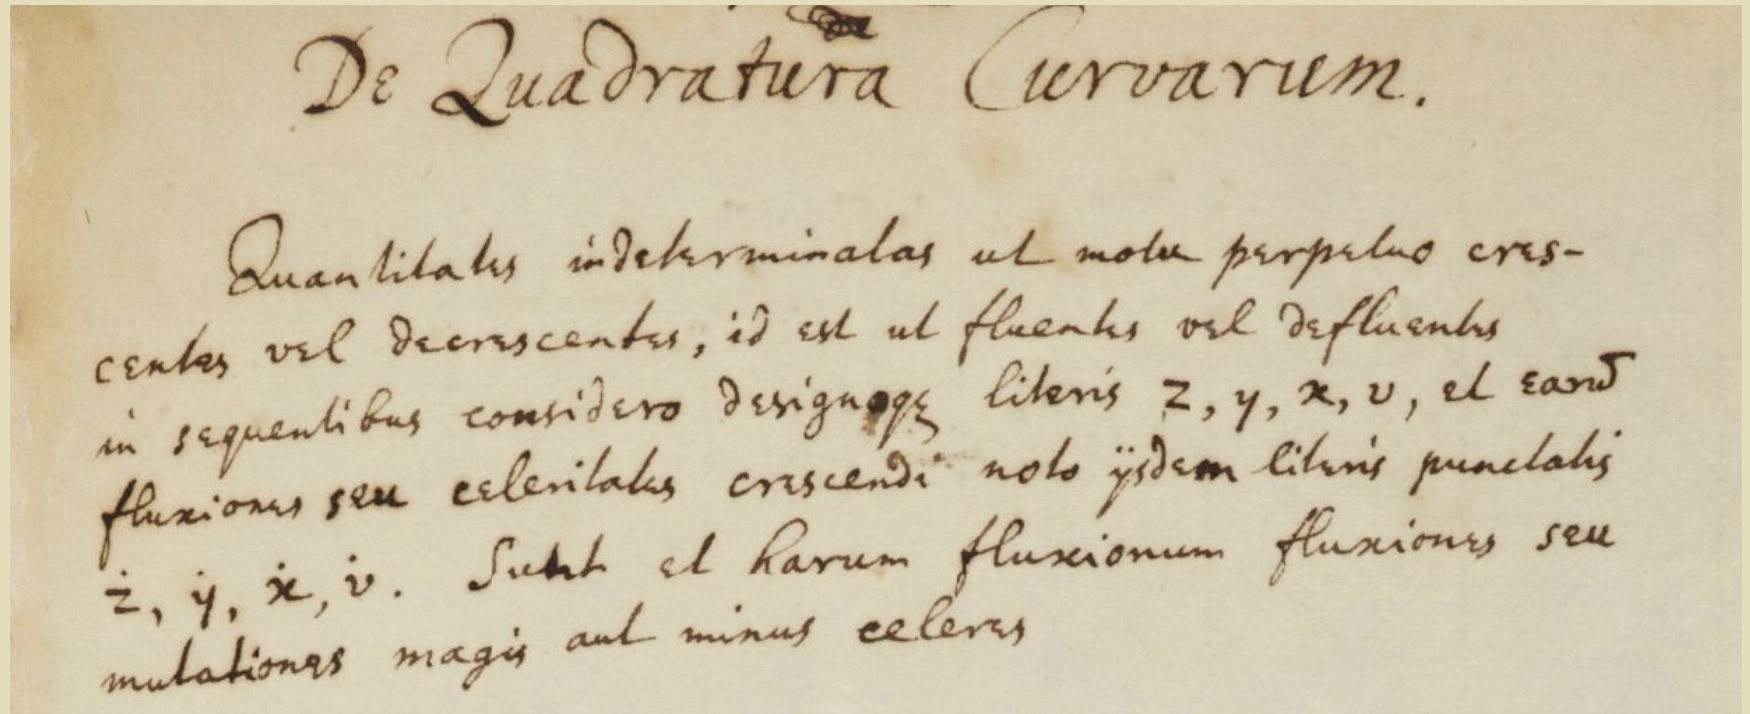 De Quadratura Curvarum.
Quantitates indeterminatas ut motu perpetuo cres-
centes vel decrescentes, id est ut fluentes vel defluentes
in sequentibus considero designoqꝫ literis z, y, x, v, et earū
fluxiones seu celeritates crescendi noto ijsdem literis punctatis
ż, ẏ, ẋ, v̇. Sunt et harum fluxionum fluxiones seu
mutationes magis aut minus celeres